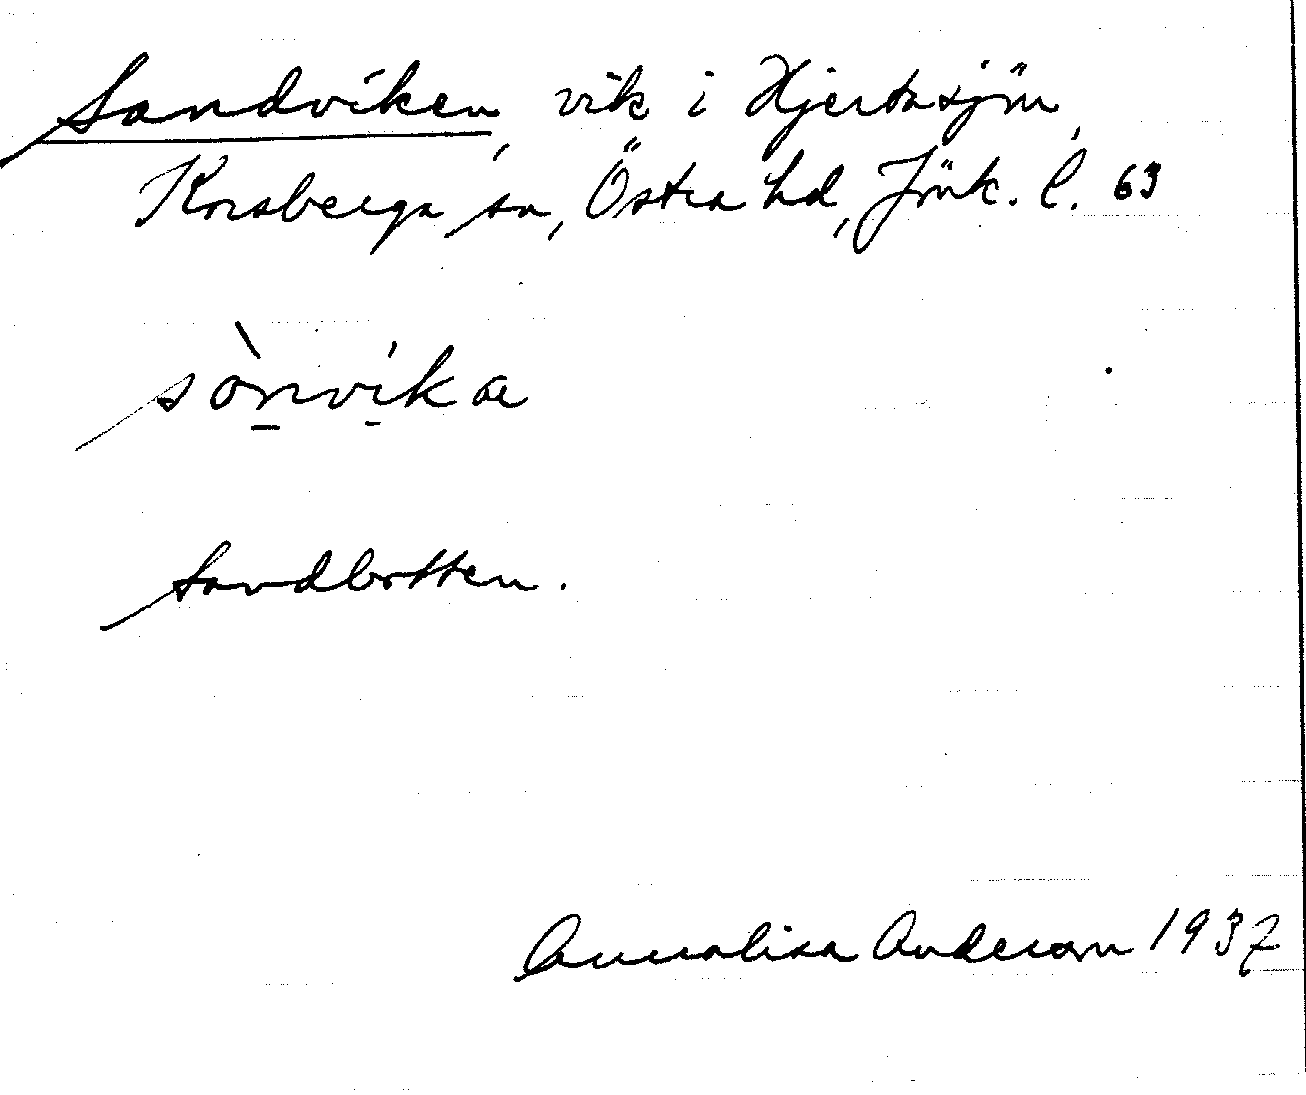 Sandviken, vik i Hjertasjön,
Korsberga sn, Östra hd, Jönk. l. 63
sònvíkæ
Sandbotten.
Annalisa Anderson 1937